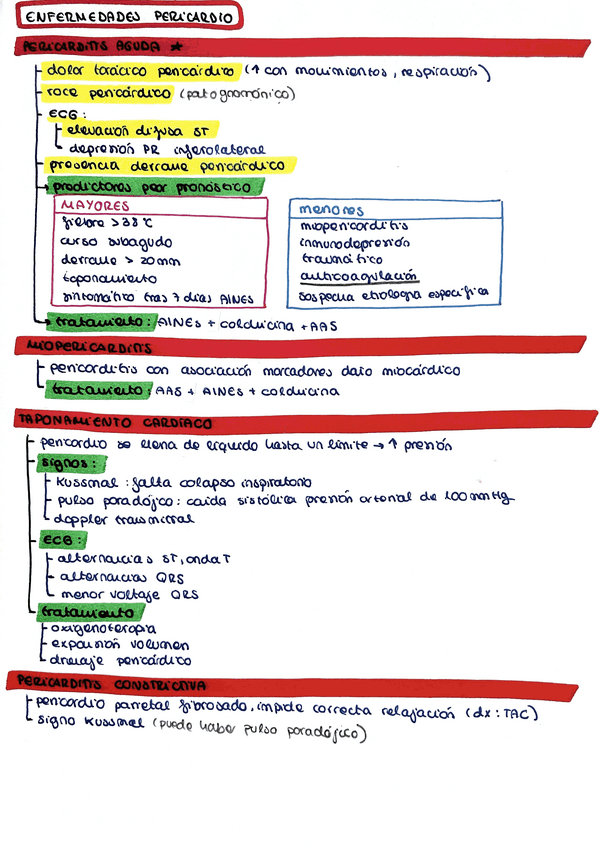 ENFERMEDADES PERICARDIO
PERICARDITIS AGUDA ★
dolor torácico pericárdico (↑ con movimientos, respiración)
roce pericárdico (patognomónico)
ECG:
elevación difusa ST
depresión PR inferolateral
presencia derrame pericárdico
predictores peor pronóstico
MAYORES
fiebre > 38°C
curso subagudo
derrame > 20mm
taponamiento
sintomático tras 7 días AINES
menores
miopericarditis
inmunodepresión
traumático
anticoagulación
sospecha etiología específica
tratamiento: AINES + colchicina + AAS
MIOPERICARDITIS
pericarditis con asociación marcadores daño miocárdico
tratamiento: AAS + AINES + colchicina
TAPONAMIENTO CARDÍACO
pericardio se llena de líquido hasta un límite → ↑ presión
signos:
Kussmal: falta colapso inspiratorio
pulso paradójico: caída sistólica presión arterial de 100mmHg
doppler transmitral
ECG:
alternancias ST, onda T
alternancias QRS
menor voltaje QRS
tratamiento
oxigenoterapia
expansión volumen
drenaje pericárdico
PERICARDITIS CONSTRICTIVA
pericardio parietal fibrosado, impide correcta relajación (dx: TAC)
signo Kussmal (puede haber pulso paradójico)